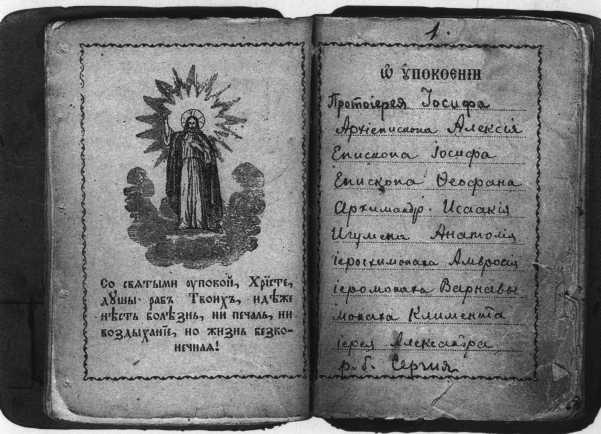 Со святыми оупокой, Хрїсте,
дꙋшы рабъ Твоихъ, идѣже
нѣсть болѣзнь, ни печаль, ни
воздыханїе, но жизнь безко-
нечная!
1.
Ѿ оупокоенїи
Протоіерея Іосифа
Архіепископа Алексія
Епископа Іосифа
Епископа Ѳеофана
Архимандр. Исаакія
Игумена Анатолія
іеросхимонаха Амвросія
іеромонаха Варнавы
монаха Климента
іерея Александра
р. б. Сергия